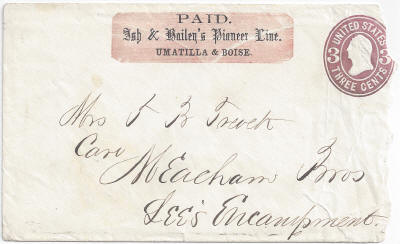 PAID.
Ash & Bailey's Pioneer Line.
UMATILLA & BOISE.
UNITED STATES
3 3
THREE CENTS
Mrs F B
Care
Meacham Bros
Lee's Encampment.